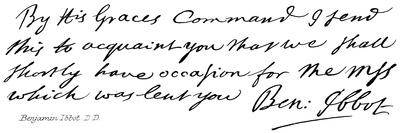 By His Graces Command I send
this to acquaint you that we shall
shortly have occasion for the Mss
which was lent you Ben: Ibbot
Benjamin Ibbot D D.